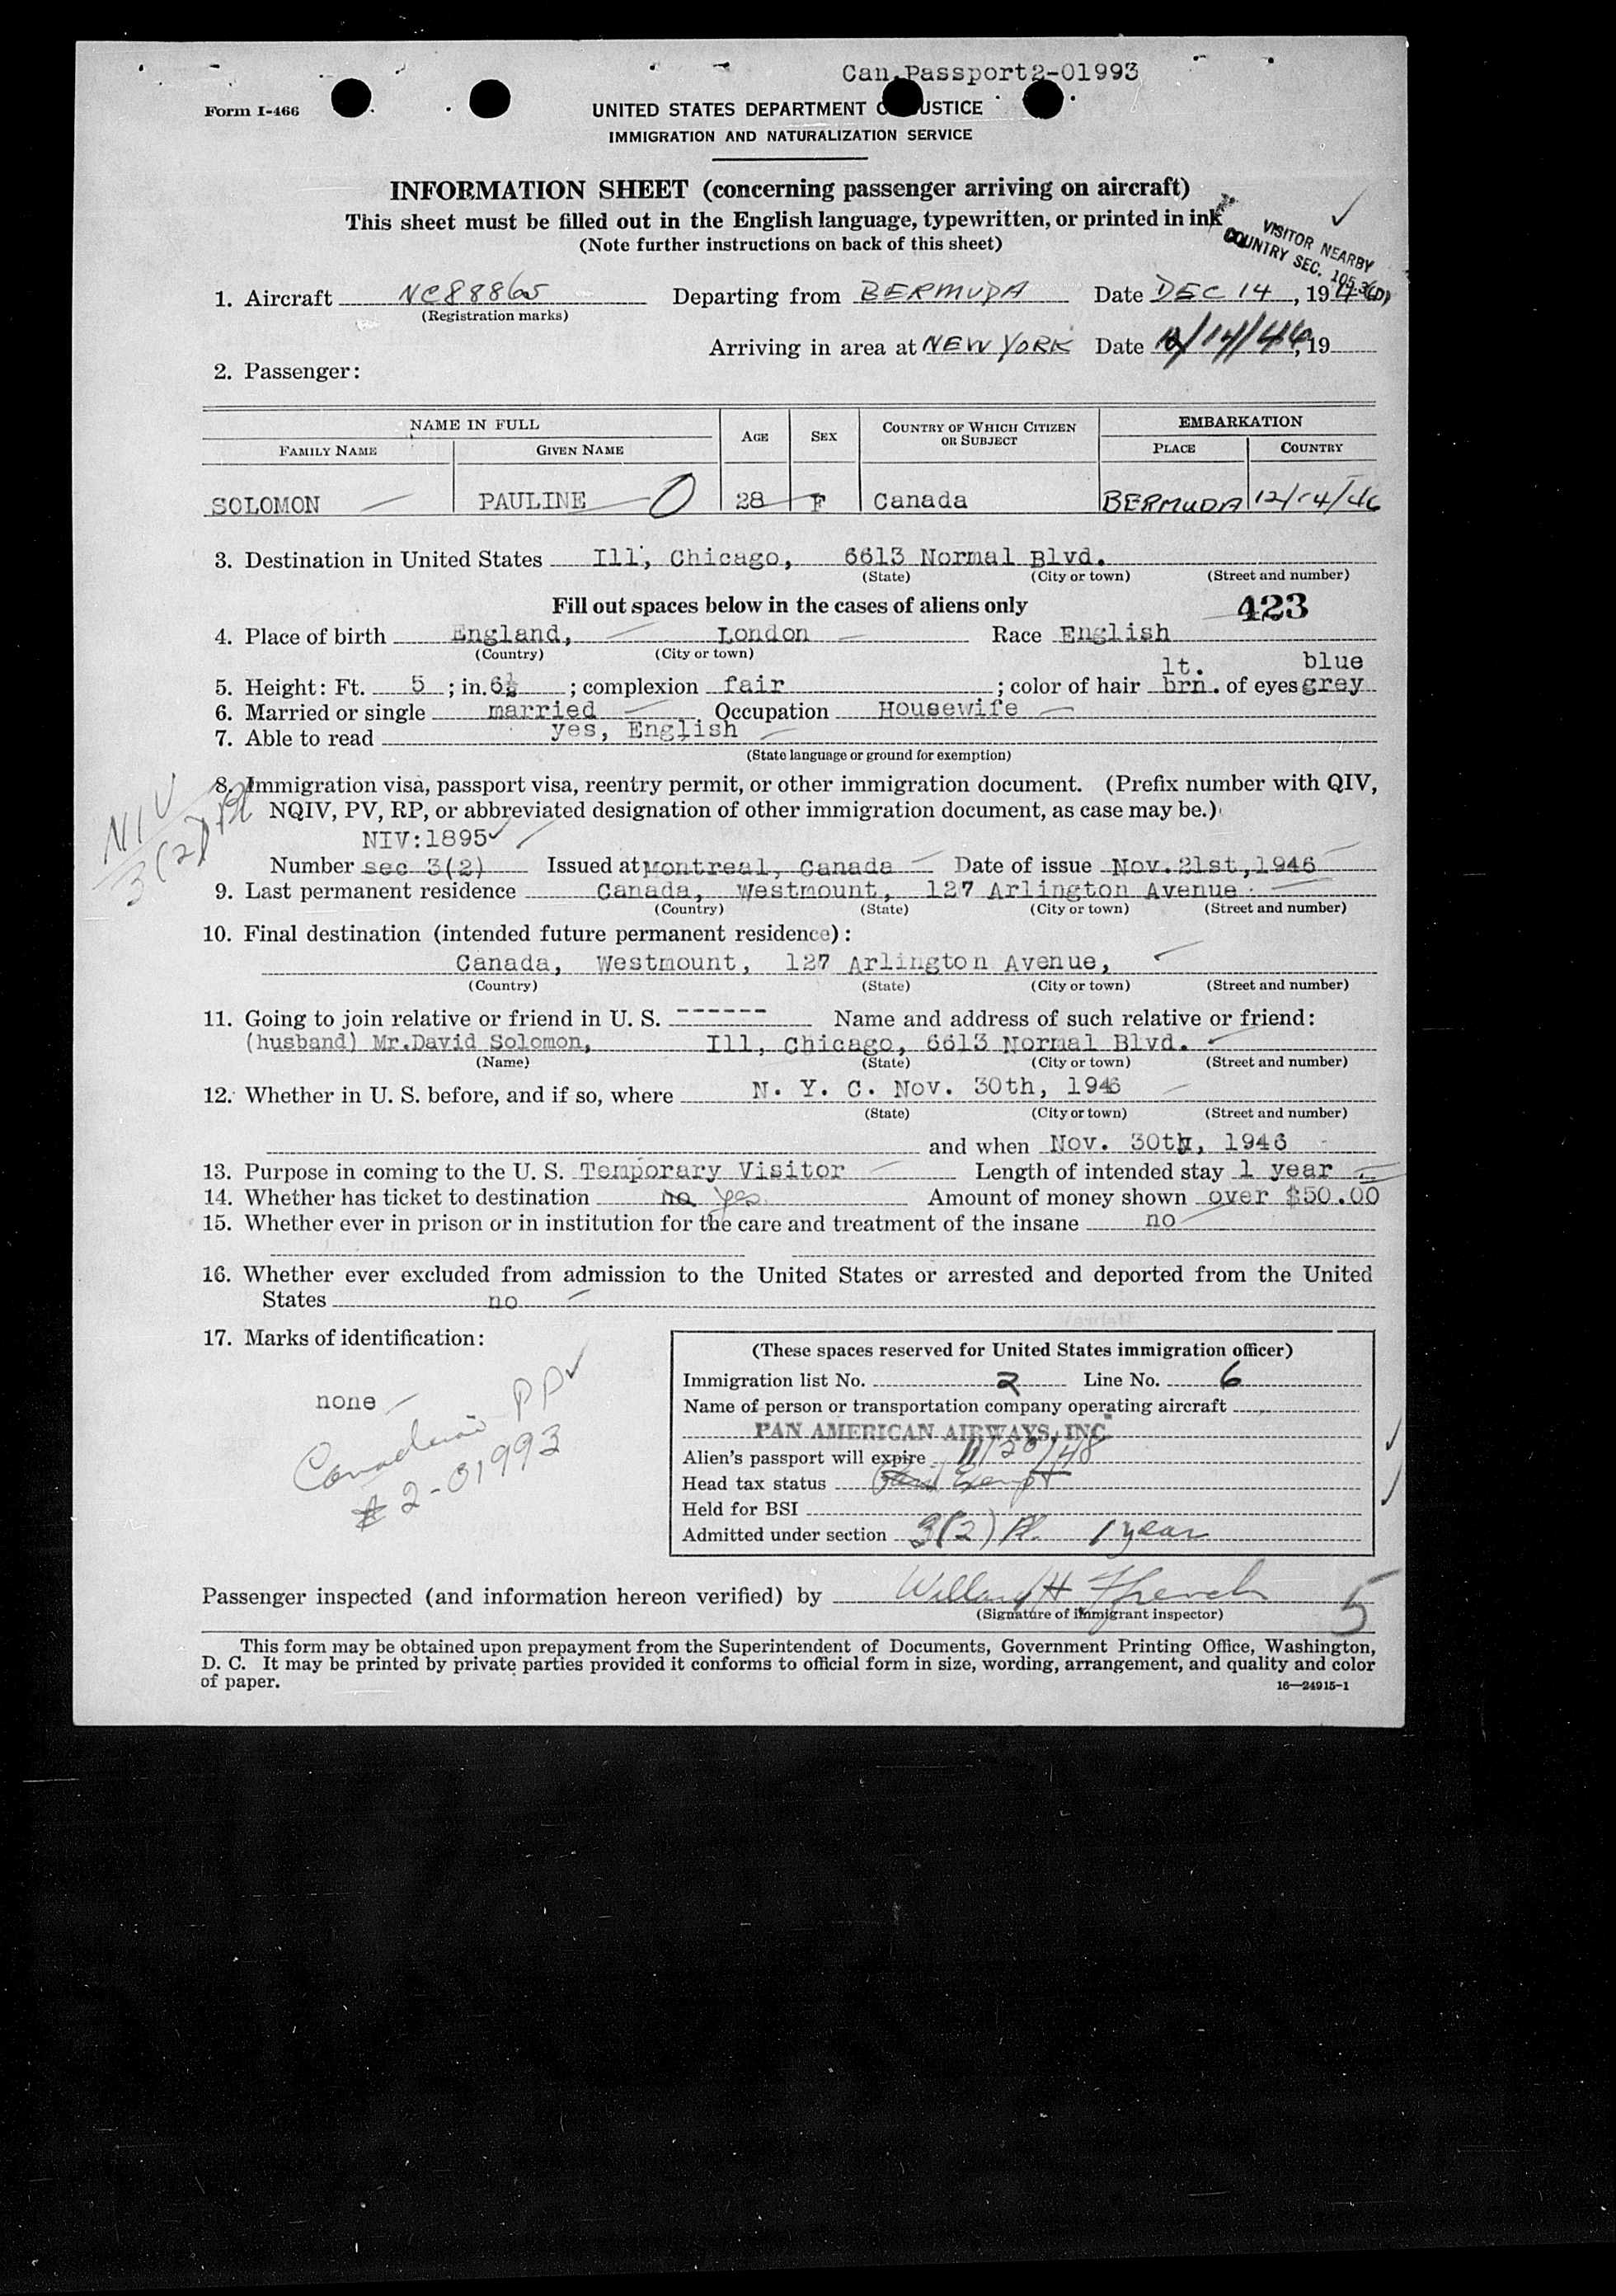 Can. Passport 2-01993
Form I-466
UNITED STATES DEPARTMENT OF JUSTICE
IMMIGRATION AND NATURALIZATION SERVICE
INFORMATION SHEET (concerning passenger arriving on aircraft)
This sheet must be filled out in the English language, typewritten, or printed in ink
(Note further instructions on back of this sheet)
VISITOR NEARBY
COUNTRY SEC. 105.3(D)
1. Aircraft NC88865 Departing from BERMUDA Date DEC 14, 19
(Registration marks)
Arriving in area at NEW YORK Date 12/14/46, 19
2. Passenger:
NAME IN FULL AGE SEX COUNTRY OF WHICH CITIZEN OR SUBJECT EMBARKATION
FAMILY NAME GIVEN NAME PLACE COUNTRY
SOLOMON PAULINE 28 F Canada BERMUDA 12/14/46
3. Destination in United States Ill, Chicago, 6613 Normal Blvd.
(State) (City or town) (Street and number)
Fill out spaces below in the cases of aliens only 423
4. Place of birth England, London Race English
(Country) (City or town)
lt. blue
5. Height: Ft. 5 ; in. 6½ ; complexion fair ; color of hair brn. of eyes grey
6. Married or single married Occupation Housewife
7. Able to read yes, English
(State language or ground for exemption)
8. Immigration visa, passport visa, reentry permit, or other immigration document. (Prefix number with QIV,
NQIV, PV, RP, or abbreviated designation of other immigration document, as case may be.)
NIV
3(2)
NIV:1895
Number sec 3(2) Issued at Montreal, Canada Date of issue Nov. 21st, 1946
9. Last permanent residence Canada, Westmount, 127 Arlington Avenue
(Country) (State) (City or town) (Street and number)
10. Final destination (intended future permanent residence):
Canada, Westmount, 127 Arlington Avenue,
(Country) (State) (City or town) (Street and number)
11. Going to join relative or friend in U. S. ------ Name and address of such relative or friend:
(husband) Mr.David Solomon, Ill, Chicago, 6613 Normal Blvd.
(Name) (State) (City or town) (Street and number)
12. Whether in U. S. before, and if so, where N. Y. C. Nov. 30th, 1946
(State) (City or town) (Street and number)
and when Nov. 30th, 1946
13. Purpose in coming to the U. S. Temporary Visitor Length of intended stay 1 year
14. Whether has ticket to destination no yes Amount of money shown over $50.00
15. Whether ever in prison or in institution for the care and treatment of the insane no
16. Whether ever excluded from admission to the United States or arrested and deported from the United
States no
17. Marks of identification:
none
Canadian PP
# 2-01993
(These spaces reserved for United States immigration officer)
Immigration list No. 2 Line No. 6
Name of person or transportation company operating aircraft
PAN AMERICAN AIRWAYS, INC.
Alien's passport will expire 11/20/48
Head tax status Exempt
Held for BSI
Admitted under section 3(2) 1 year
Passenger inspected (and information hereon verified) by Willard H. French
(Signature of immigrant inspector)
5
This form may be obtained upon prepayment from the Superintendent of Documents, Government Printing Office, Washington,
D. C. It may be printed by private parties provided it conforms to official form in size, wording, arrangement, and quality and color
of paper.
16—24915-1